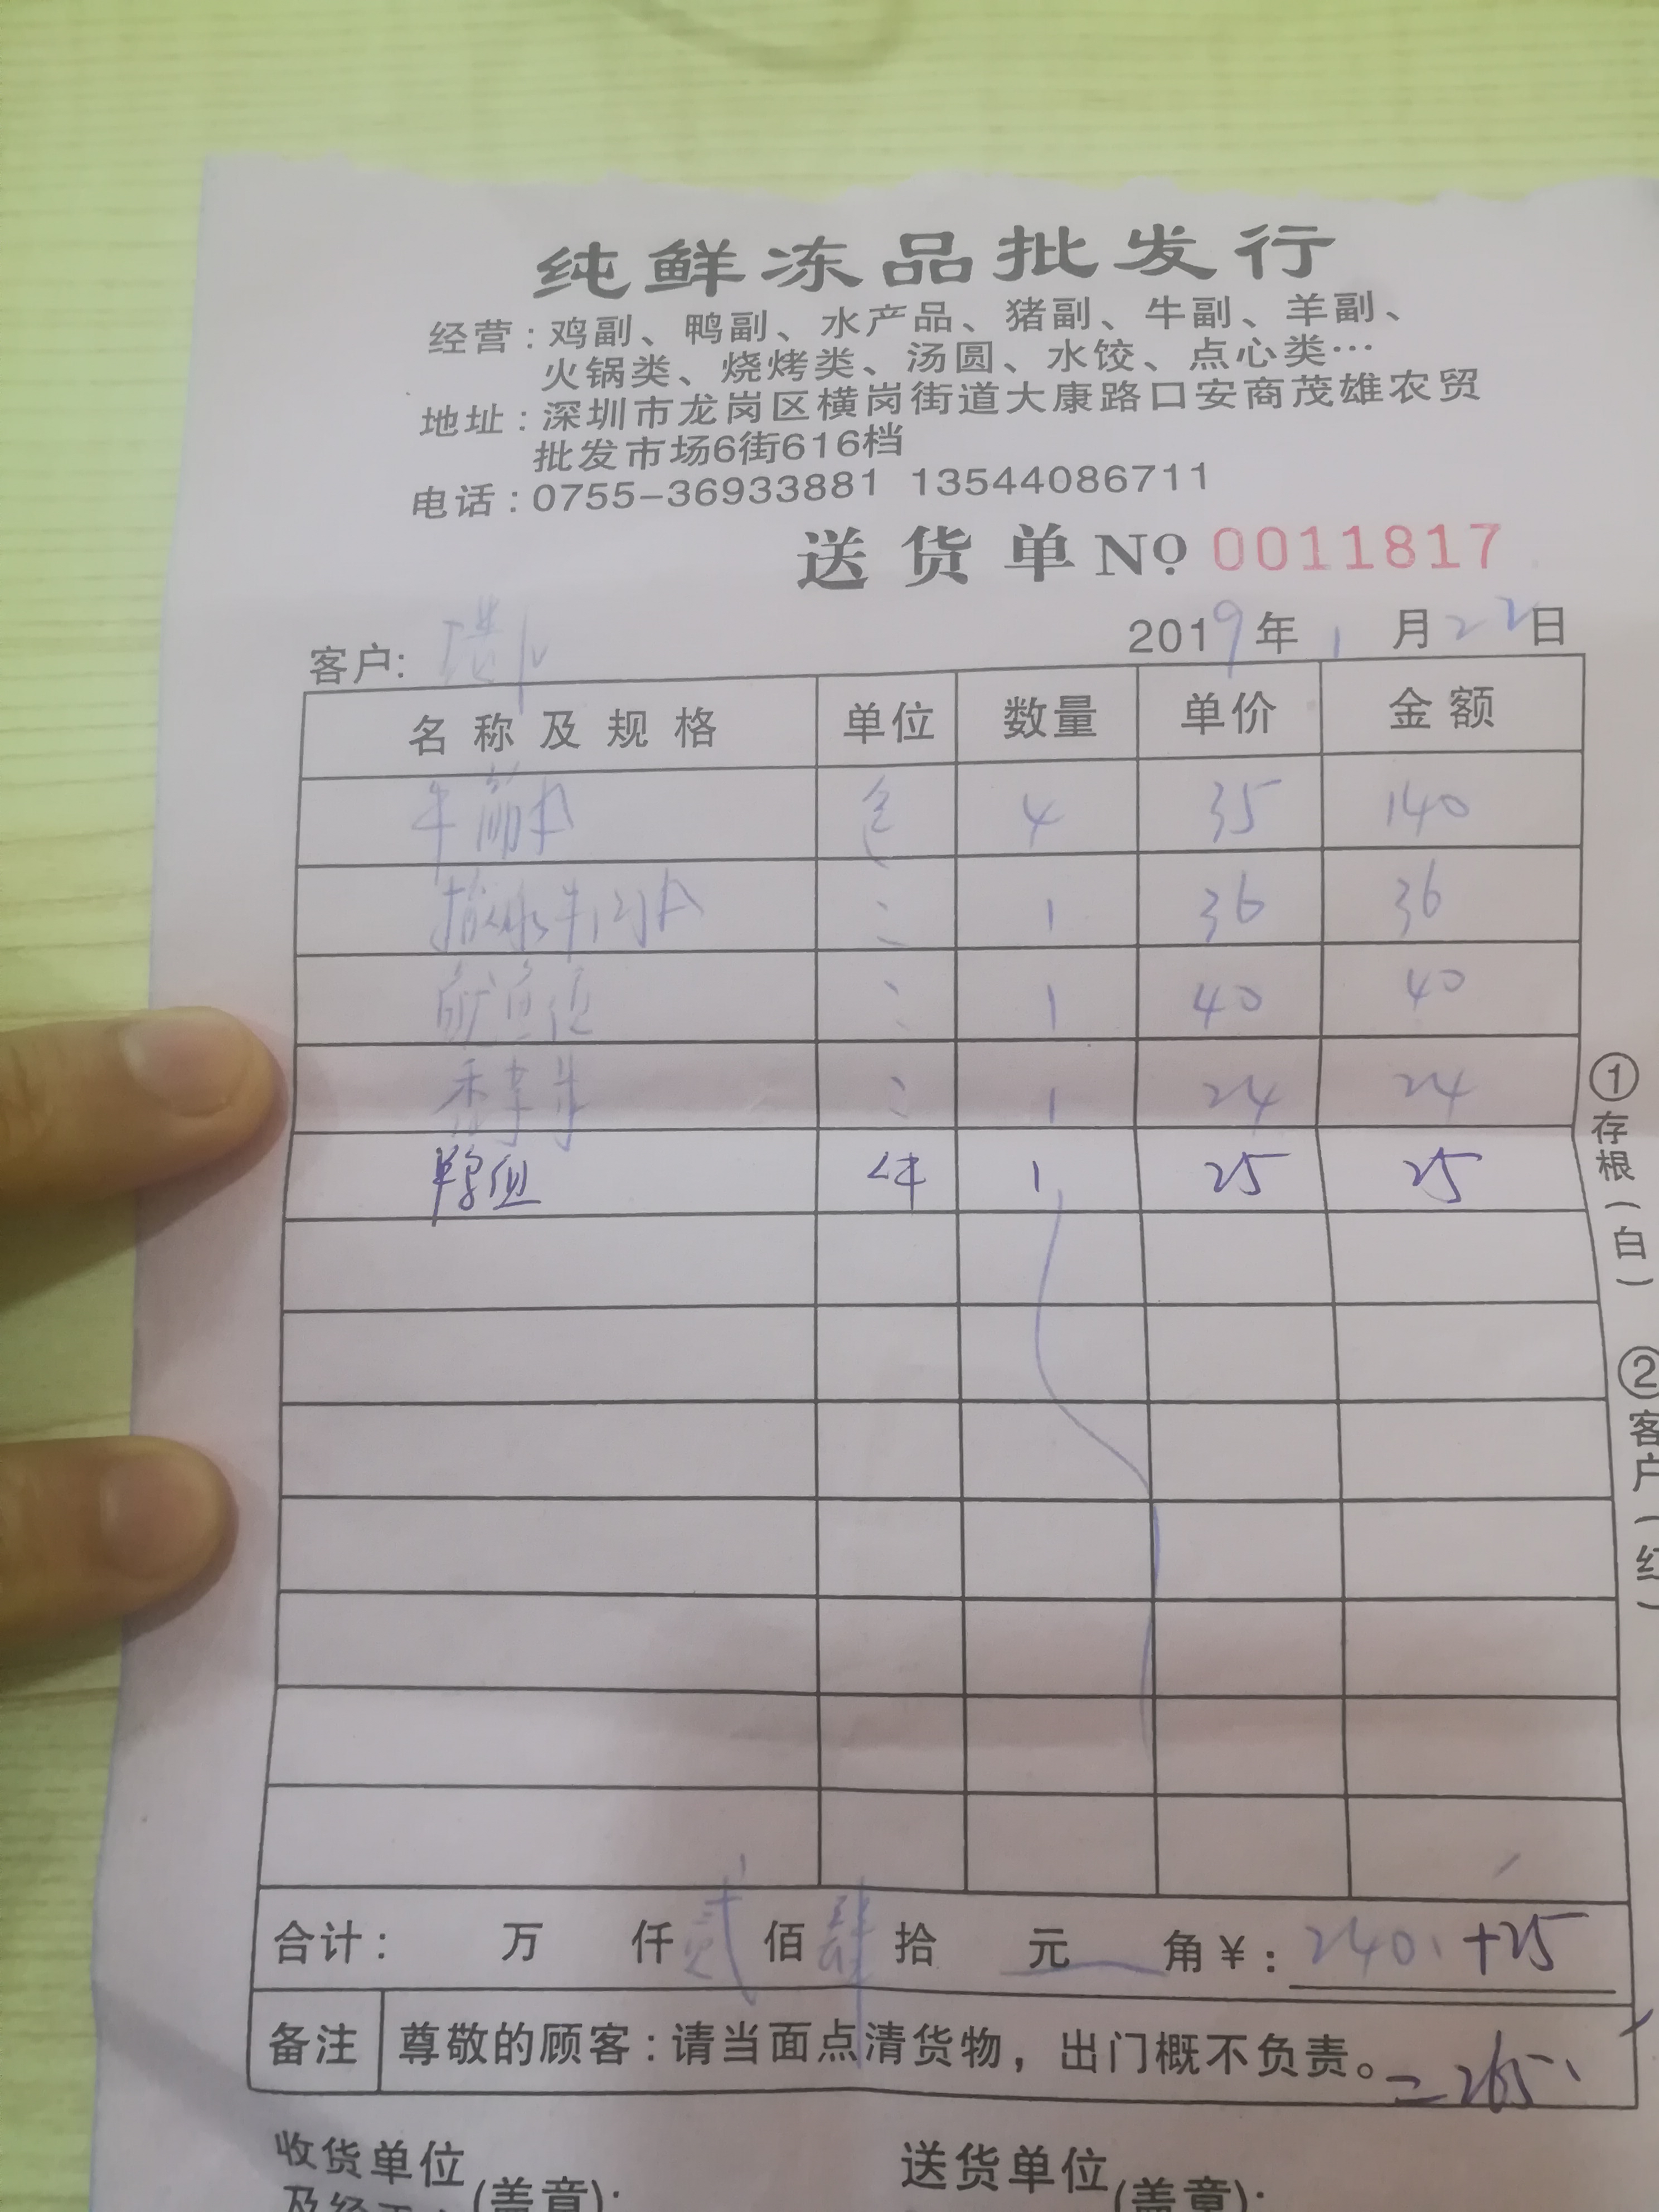 纯鲜冻品批发行
经营：鸡副、鸭副、水产品、猪副、牛副、羊副、
火锅类、烧烤类、汤圆、水饺、点心类…
地址：深圳市龙岗区横岗街道大康路口安商茂雄农贸
批发市场6街616档
电话：0755-36933881 13544086711
送货单 № 0011817
客户：
2019年1月22日
名称及规格 单位 数量 单价 金额
牛筋丸 包 4 35 140
1 36 36
1 40 40
1 24 24
件 1 25 25
①存根(白) ②客户(红)
合计： 万 仟 贰 佰 肆 拾 元 角 ¥：240 +25
备注 尊敬的顾客：请当面点清货物，出门概不负责。
=265
收货单位 (盖章)：
送货单位 (盖章)：